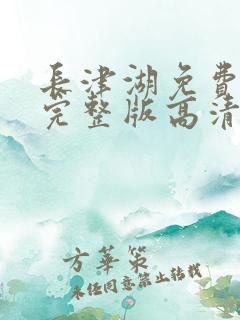 長津湖免費
完整版高清
方華策
未經同意禁止轉載